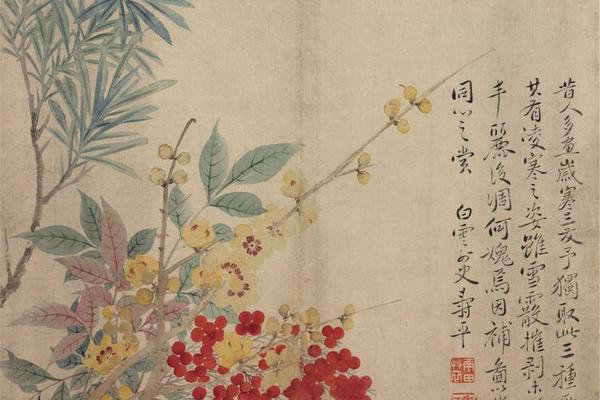 昔人多畫歲寒三友予獨取此三種
其有凌寒之姿雖雪霰摧剥未
丰麗後凋何媿焉因補啚
同心之賞 白雲外史壽平